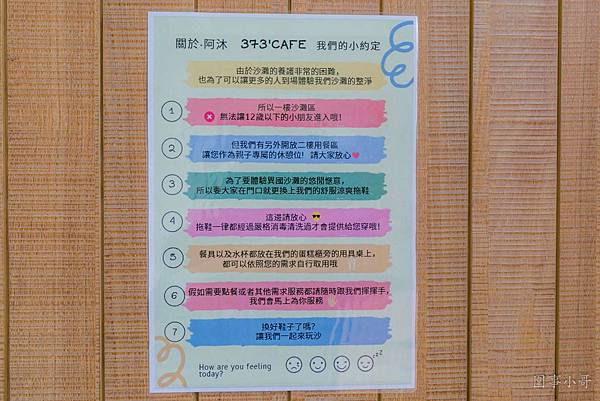 關於-阿沐 373'CAFE 我們的小約定
由於沙灘的養護非常的困難，
也為了可以讓更多的人到場體驗我們沙灘的整淨
1
所以一樓沙灘區
無法讓12歲以下的小朋友進入哦!
2
但我們有另外開放二樓用餐區
讓您作為親子專屬的休憩位! 請大家放心❤
3
為了要體驗異國沙灘的悠閒愜意，
所以要大家在門口就更換上我們的舒服涼爽拖鞋
4
這邊請放心 😎
拖鞋一律都經過嚴格消毒清洗過才會提供給您穿哦!
5
餐具以及水杯都放在我們的蛋糕櫃旁的用具桌上，
都可以依照您的需求自行取用哦
6
假如需要點餐或者其他需求服務都請隨時跟我們揮揮手，
我們會馬上為你服務 👋
7
換好鞋子了嗎?
讓我們一起來玩沙
How are you feeling
today?
zzZ
国事小哥